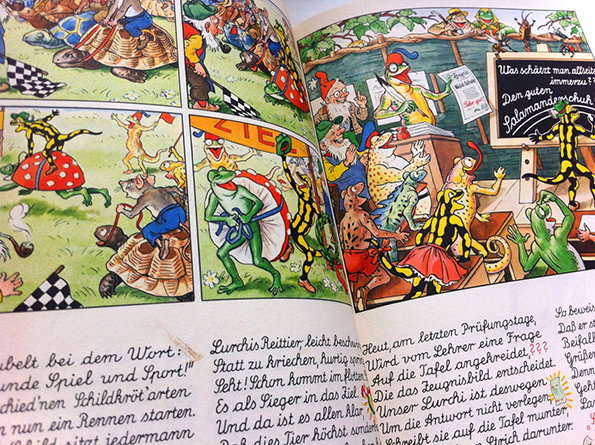 ZIE
Zeugnis
Waldschule
Sehr gut
Was schätzt man allseits
immerzu??
Den guten
Salamanderschuh
ubelt bei dem Wort:
unde Spiel und Sport!"
chied'nen Schildkröt'arten
n nun ein Rennen starten.
ild sitzt jedermann
Lurchis Reittier, leicht beschwin
Statt zu kriechen, hurtig spring
Seht! Schon kommt im flotten
Es als Sieger in das Ziel.
Und da ist es allen klar
Daß dies Tier höchst sonder
Heut, am letzten Prüfungstage,
Wird vom Lehrer eine Frage
Auf die Tafel angekreidet, ???
Die das Zeugnisbild entscheidet.
Unser Lurchi ist deswegen
Um die Antwort nicht verlegen
Schreibt sie auf die Tafel munter,
Strich darunter.
So beweis
Daß er st
Beifall
Grüßen
Denn